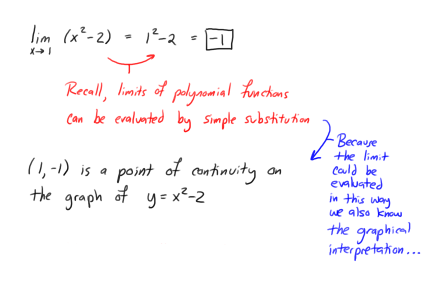 lim x→1 (x²-2) = 1²-2 = -1
Recall, limits of polynomial functions
can be evaluated by simple substitution
Because
the limit
could be
evaluated
in this way
we also know
the graphical
interpretation...
(1,-1) is a point of continuity on
the graph of y = x²-2